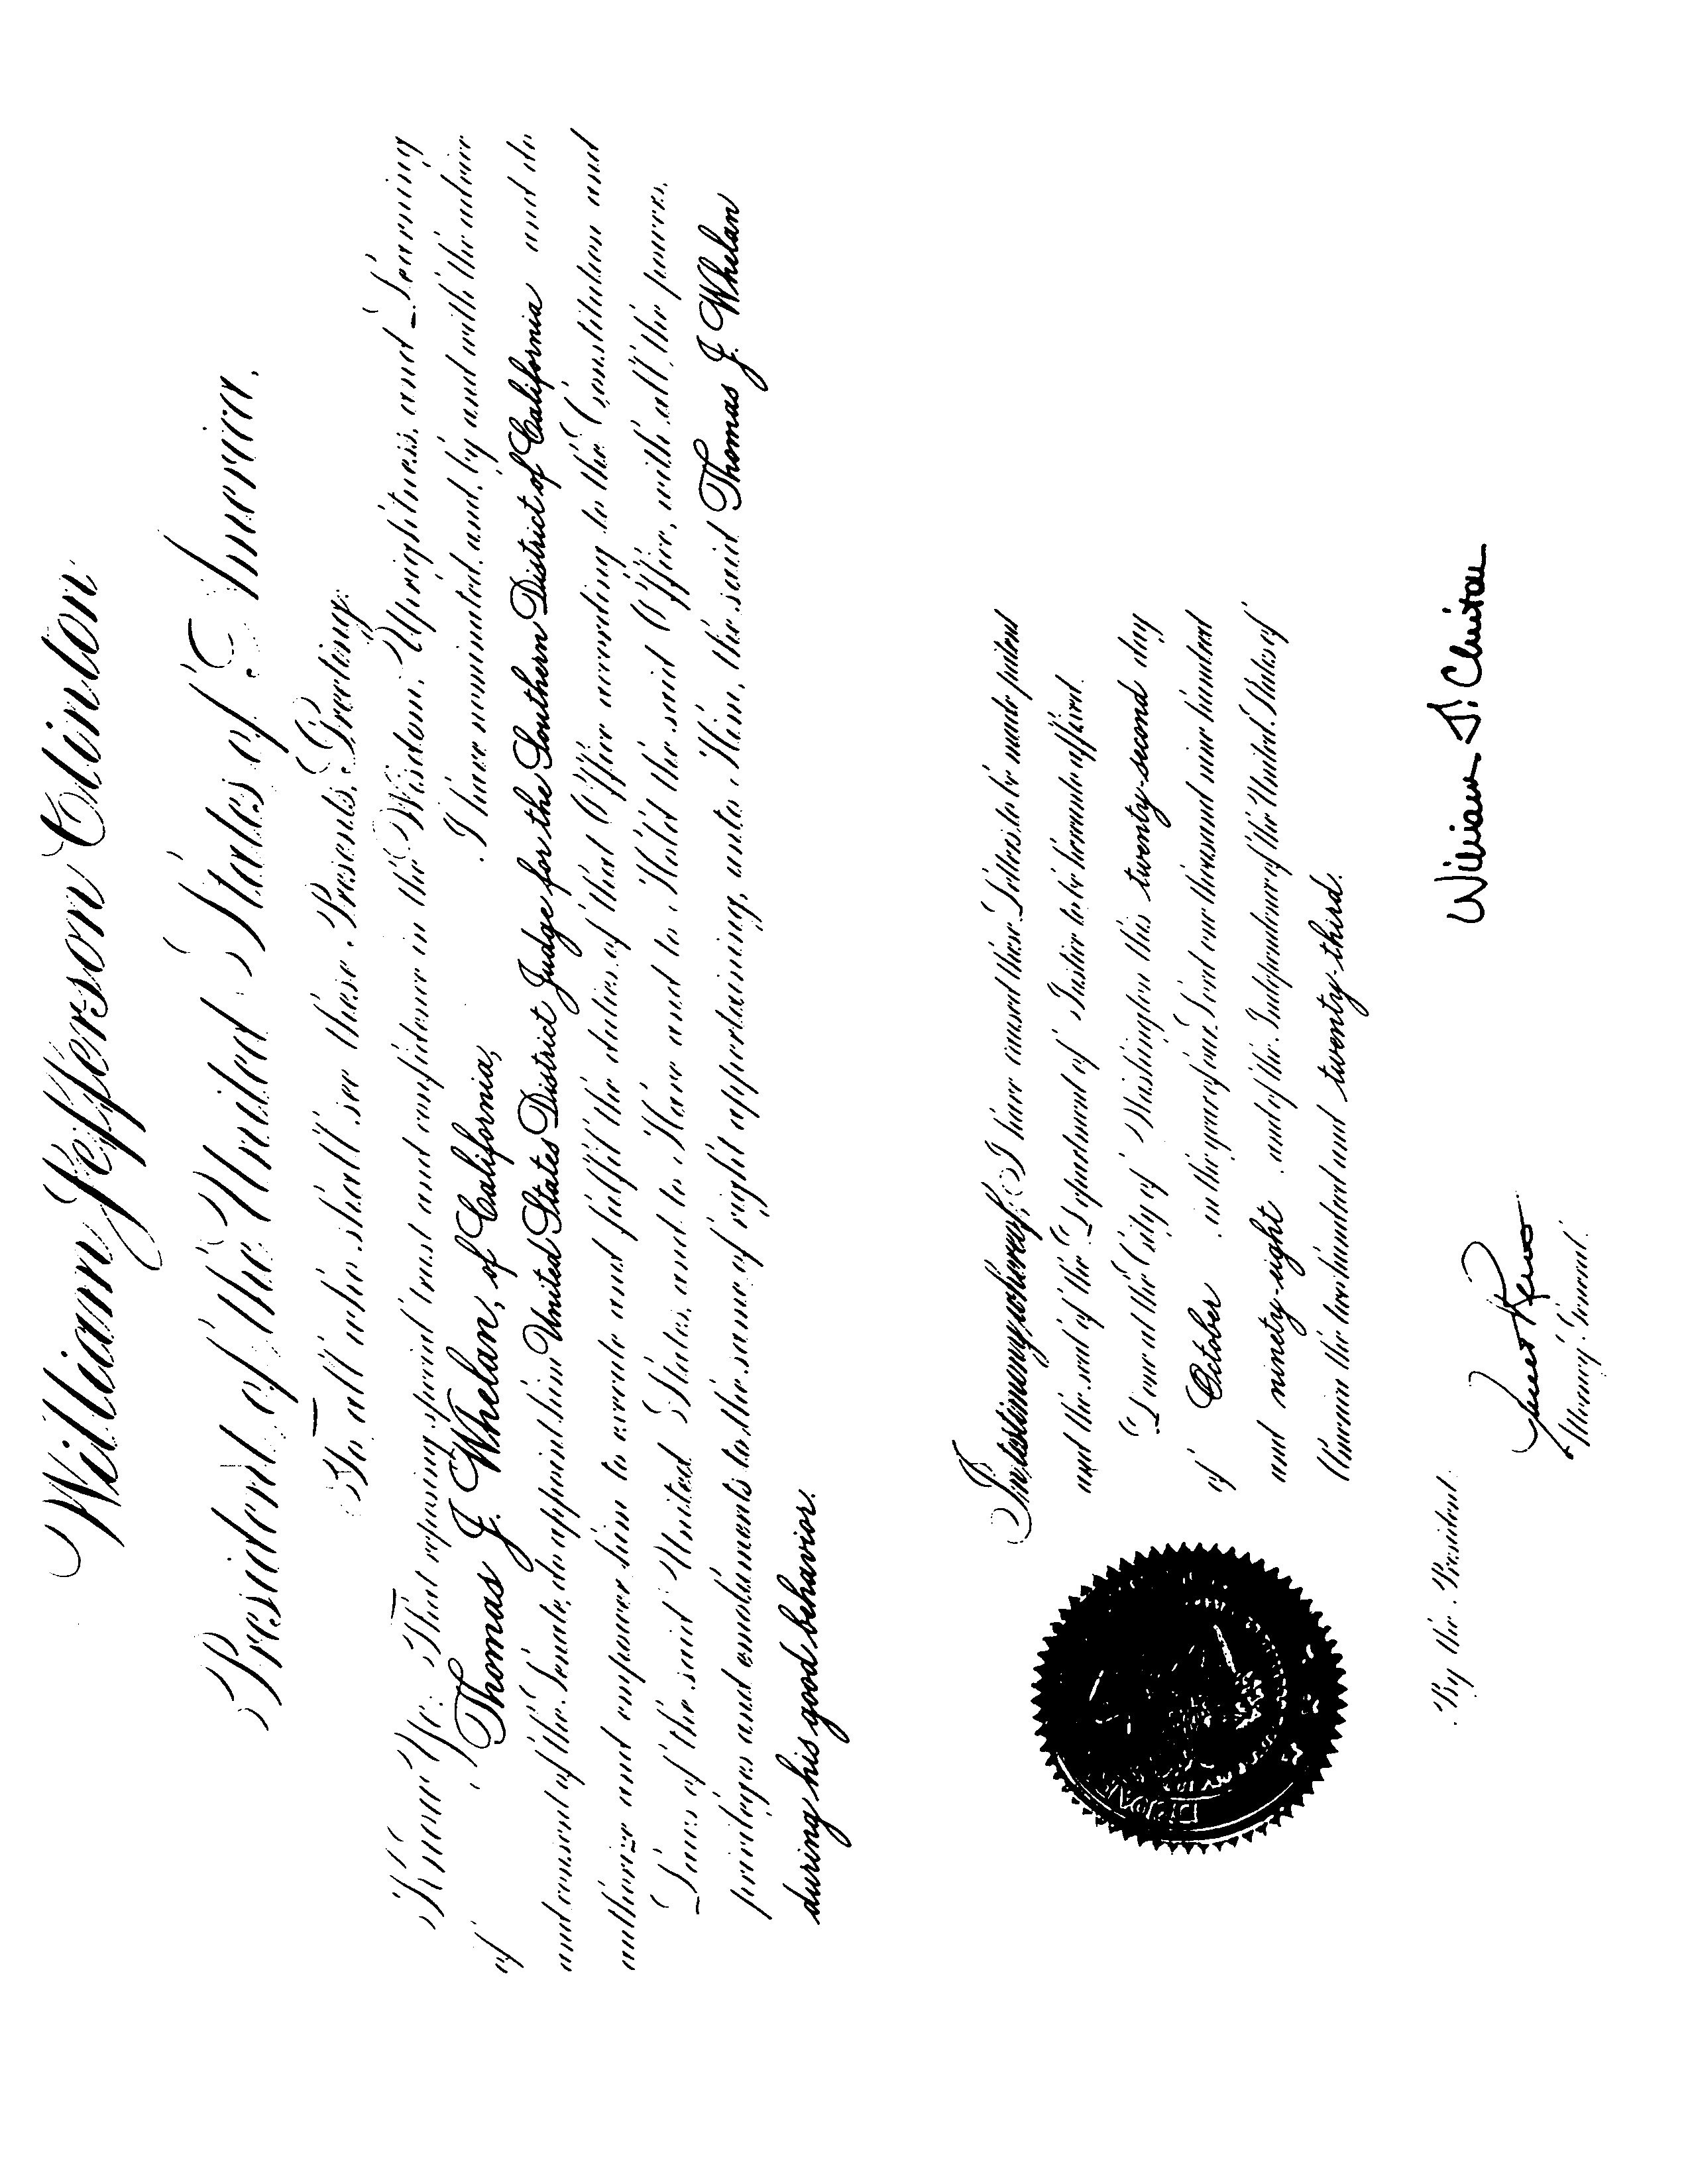 William Jefferson Clinton
President of the United States of America.
To all who shall see these Presents, Greeting:
Know Ye: That reposing special trust and confidence in the Wisdom, Uprightness, and Learning
of Thomas J. Whelan, of California, I have nominated, and, by and with the advice
and consent of the Senate, do appoint him United States District Judge for the Southern District of California and do
authorize and empower him to execute and fulfil the duties of that Office according to the Constitution and
Laws of the said United States, and to Have and to Hold the said Office, with all the powers,
privileges and emoluments to the same of right appertaining, unto Him, the said Thomas J. Whelan
during his good behavior.
In testimony whereof, I have caused these Letters to be made patent
and the seal of the Department of Justice to be hereunto affixed.
Done at the City of Washington this twenty-second day
of October in the year of our Lord one thousand nine hundred
and ninety-eight and of the Independence of the United States of
America the two hundred and twenty-third.
William J. Clinton
By the President:
Janet Reno
Attorney General.